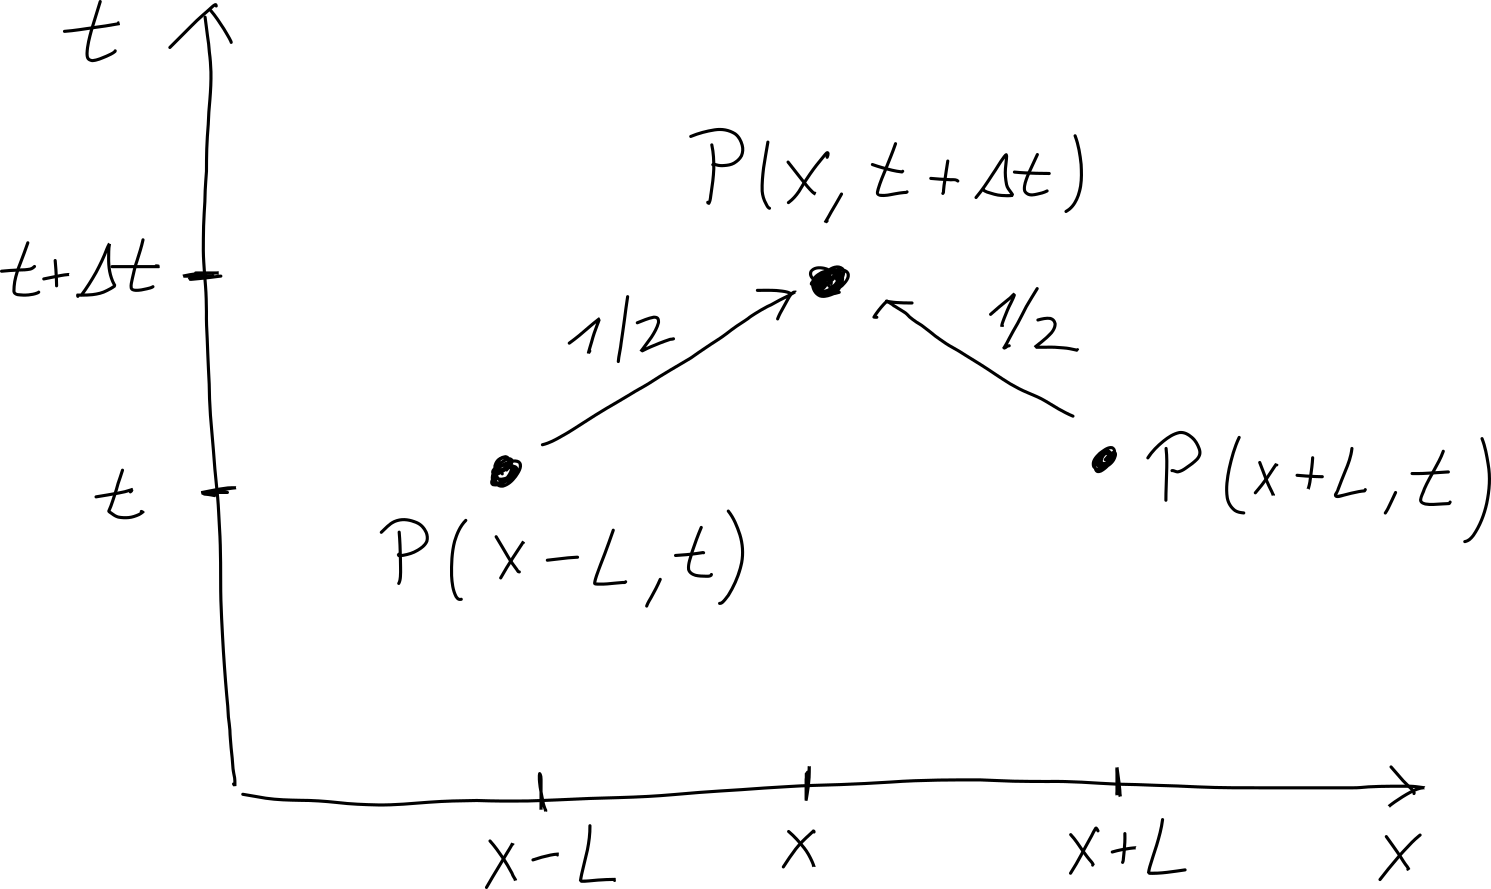 t
P(x, t+Δt)
t+Δt
1/2
1/2
t
P(x+L,t)
P(x-L,t)
x-L
x
x+L
x